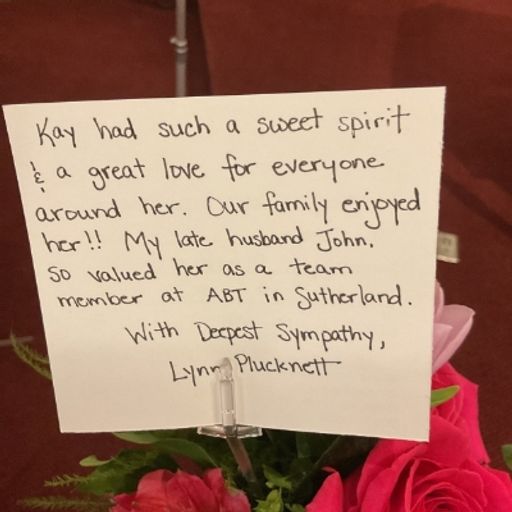 Kay had such a sweet spirit
& a great love for everyone
around her. Our family enjoyed
her!! My late husband John,
so valued her as a team
member at ABT in Sutherland.
With Deepest Sympathy,
Lynn Plucknett